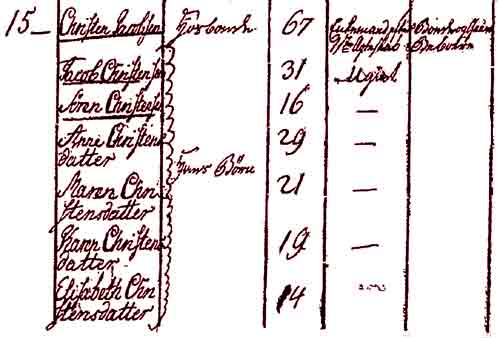 15 _ Christen Jacobsen Hosbonde 67 Enkemand efter
1ste Ægteskab Bonde og Gaard
Beboere
Jacob Christensen 31 Ugivt
Søren Christensen 16 —
Anne Christens
datter 29 —
Hans Børn
Maren Chri
stensdatter 21 —
Karen Christens
datter 19 —
Elisabeth Chri
stensdatter 14